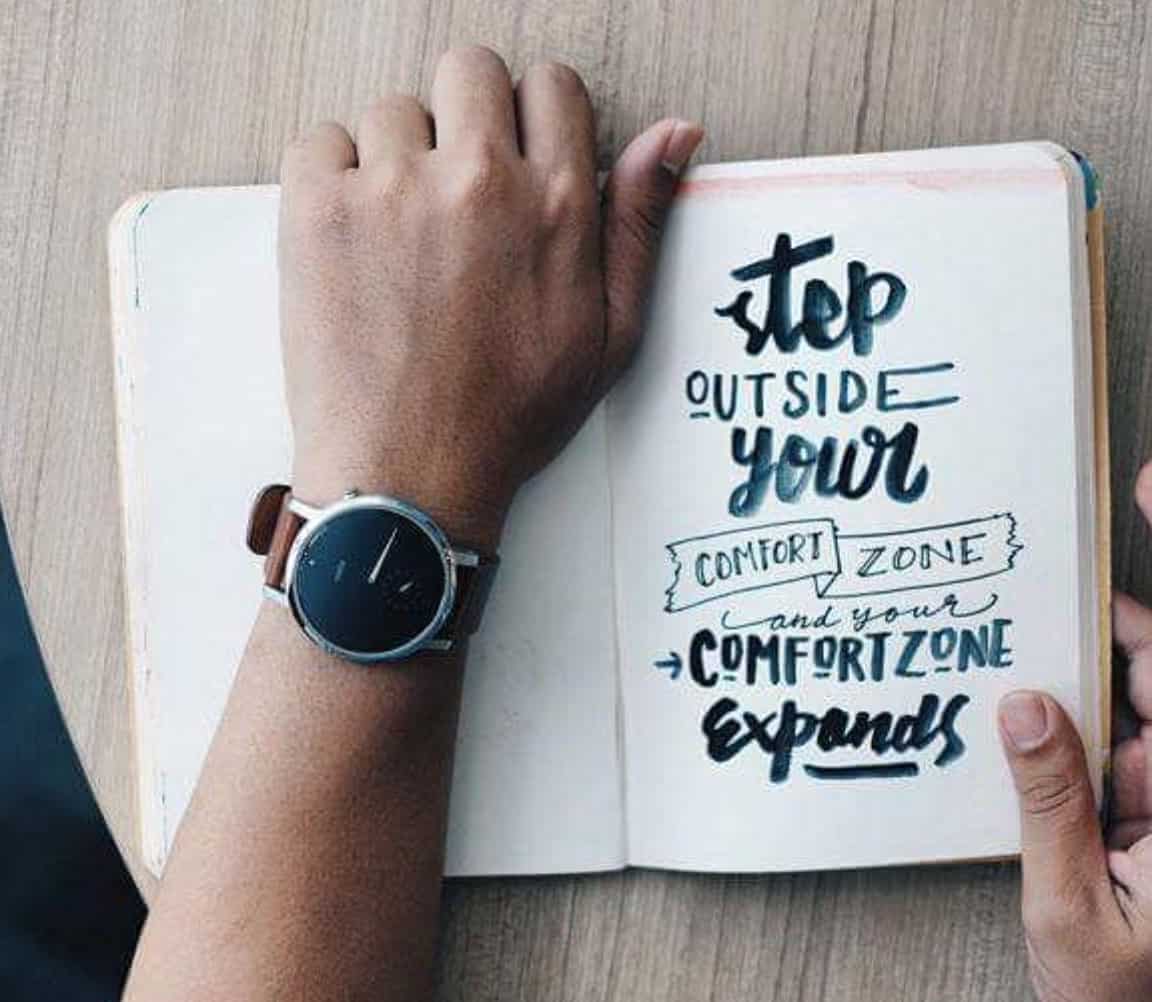 step
OUTSIDE
your
COMFORT ZONE
and your
→COMFORT ZONE
Expands